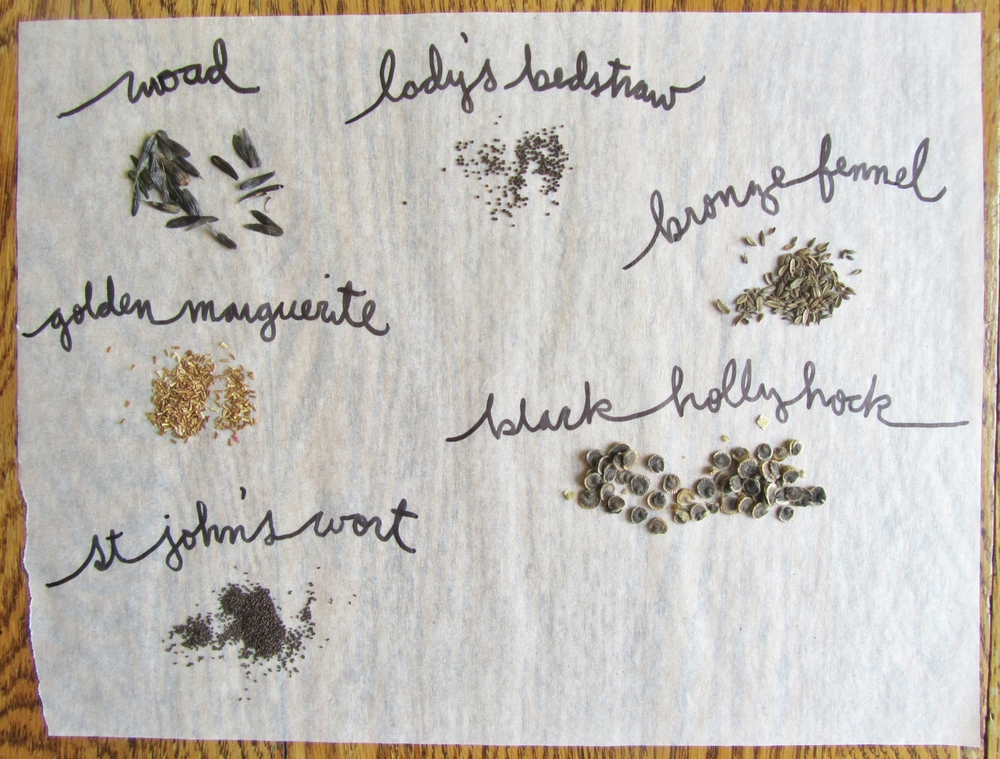 woad
lady's bedstraw
bronze fennel
golden marguerite
black hollyhock
st john's wort